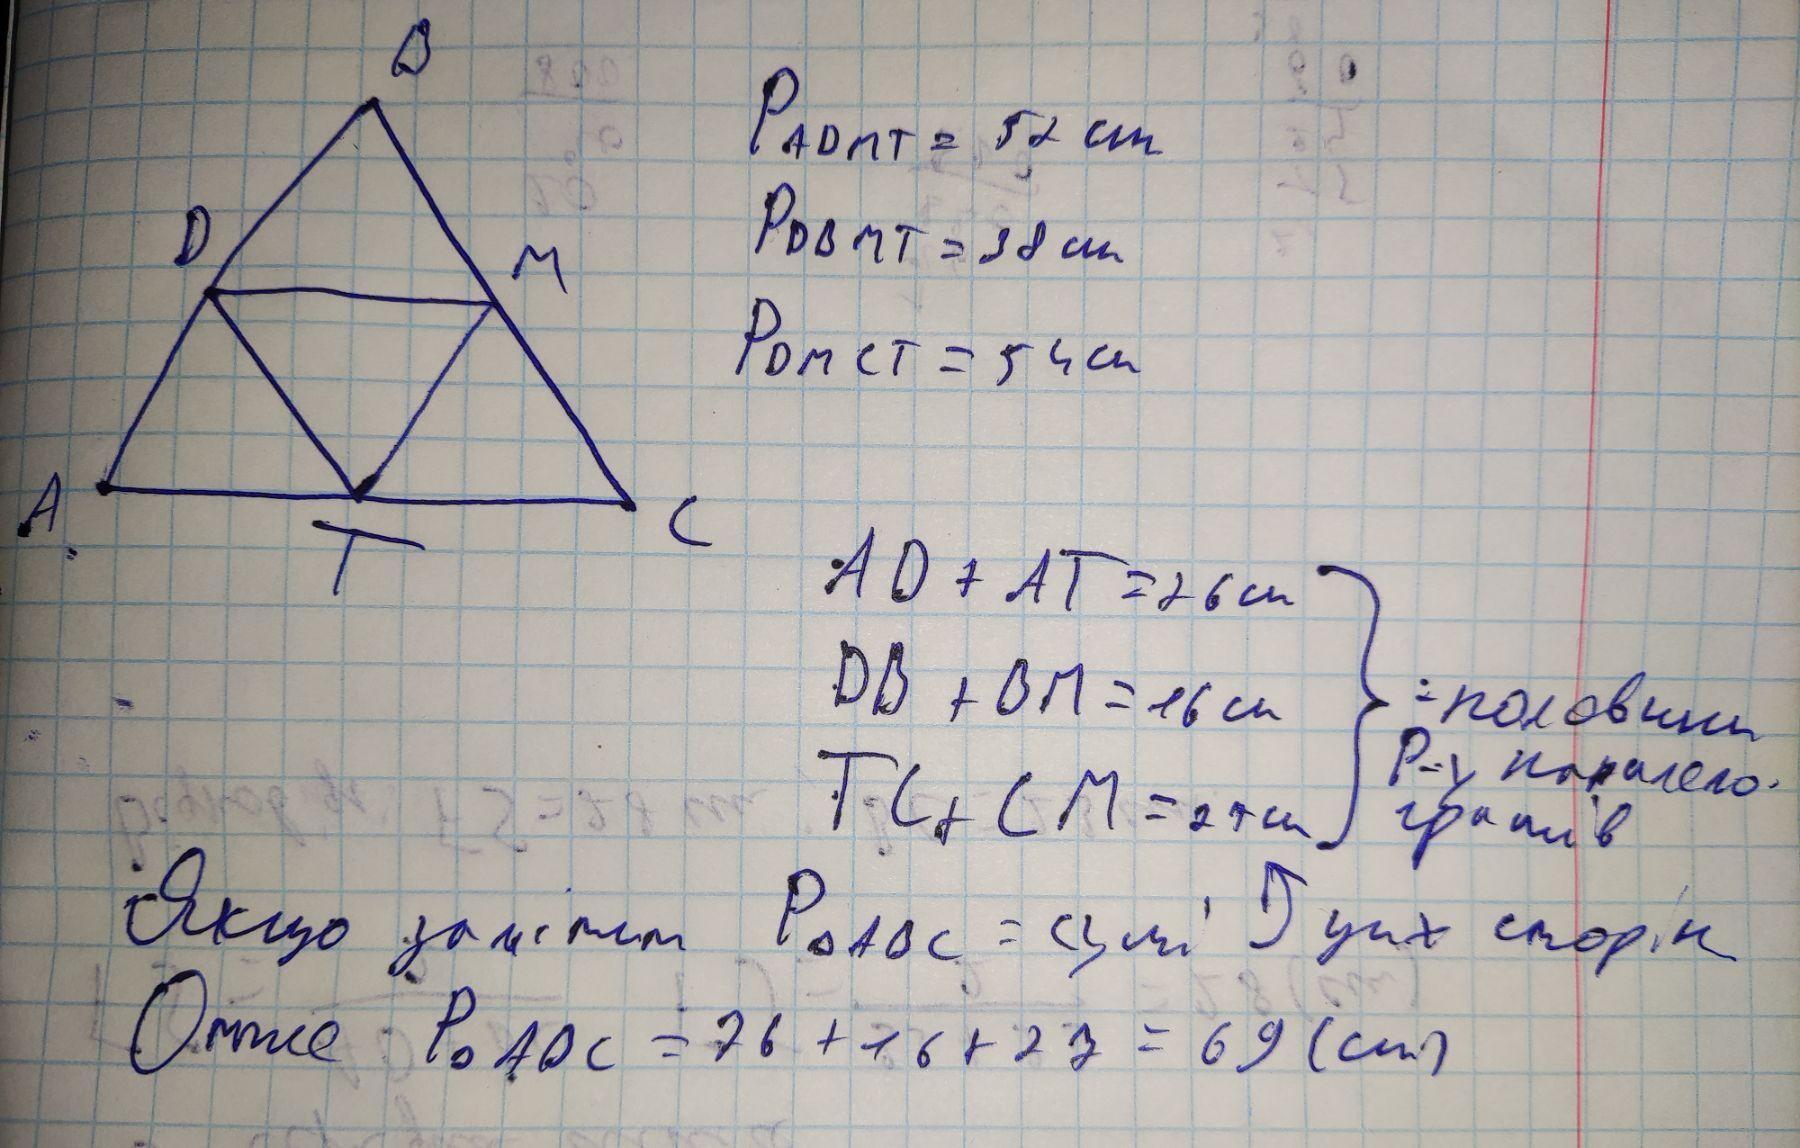 B
D
M
A
T
C
P ADMT = 52 cm
P DBMT = 38 cm
P DMCT = 54 cm
AD + AT = 26 cm
DB + BM = 16 cm
TC + CM = 27 cm
= половини
Р-у паралело-
грамів
Якщо замітити P△ABC = сумі цих сторін
Отже P△ABC = 26 + 16 + 27 = 69 (cm)